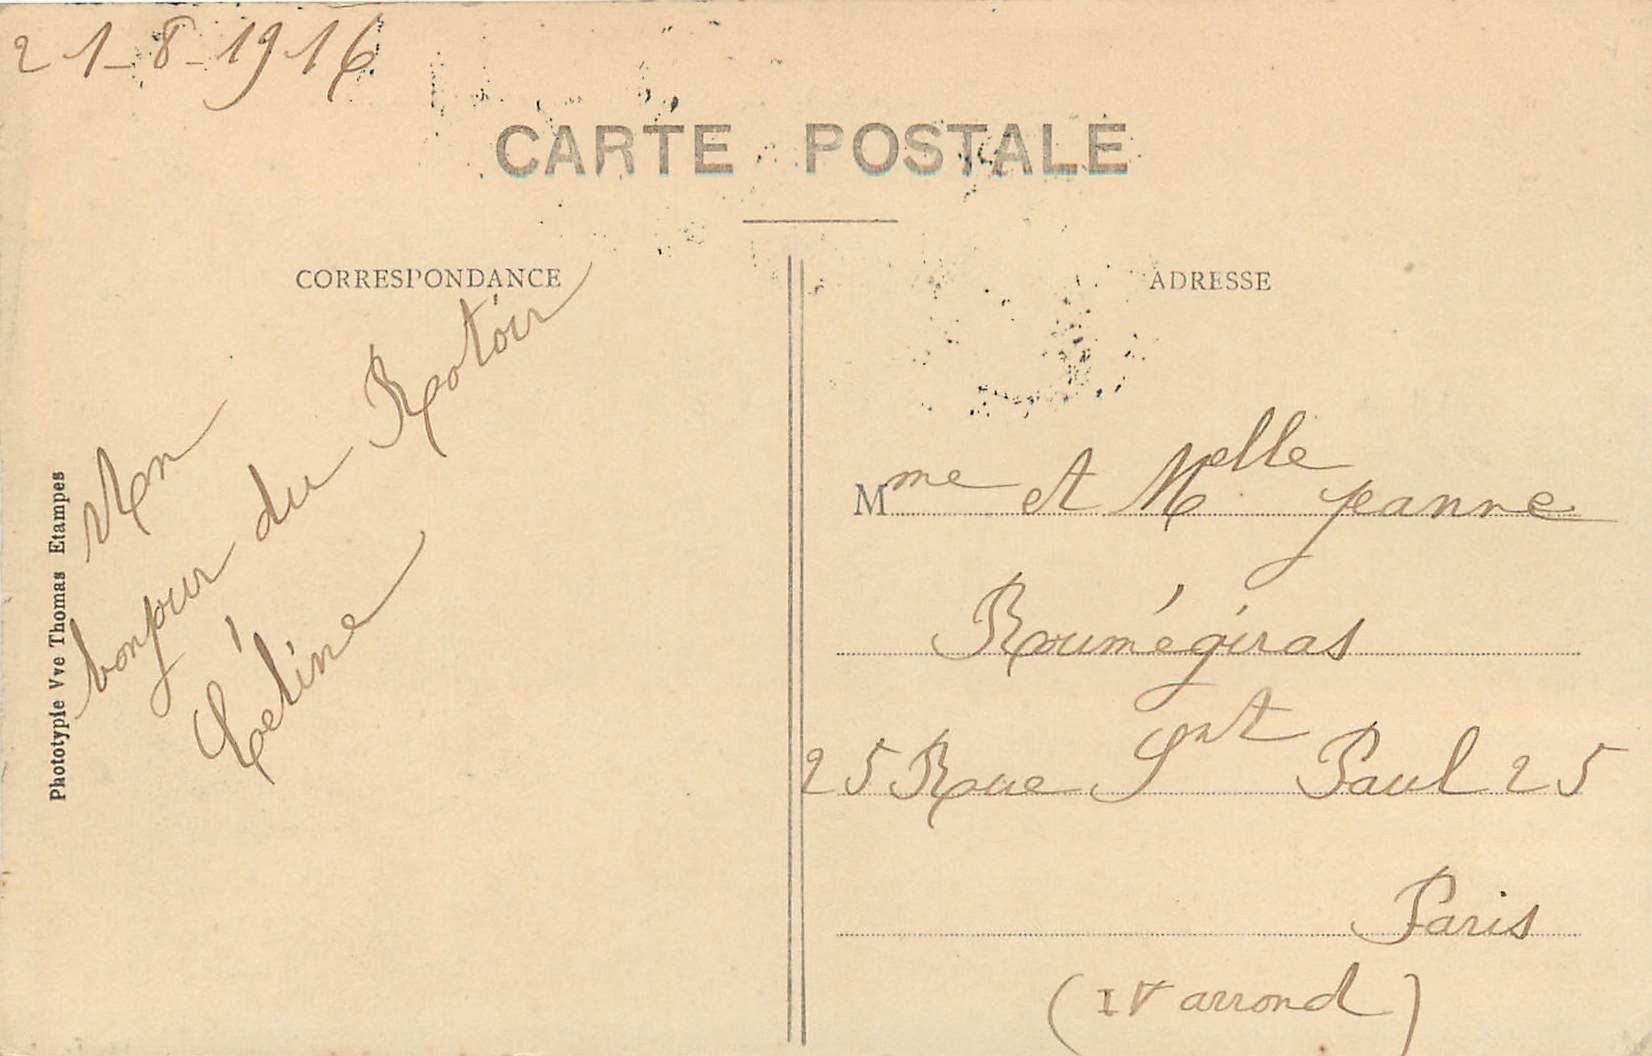 21-8-1916
CARTE POSTALE
CORRESPONDANCE
Un
bonjour du Rotoir
Céline
Phototypie Vve Thomas Etampes
ADRESSE
Mme et Melle jeanne
Roumégiras
25 Rue Snt Paul 25
Paris
(IV arrond)